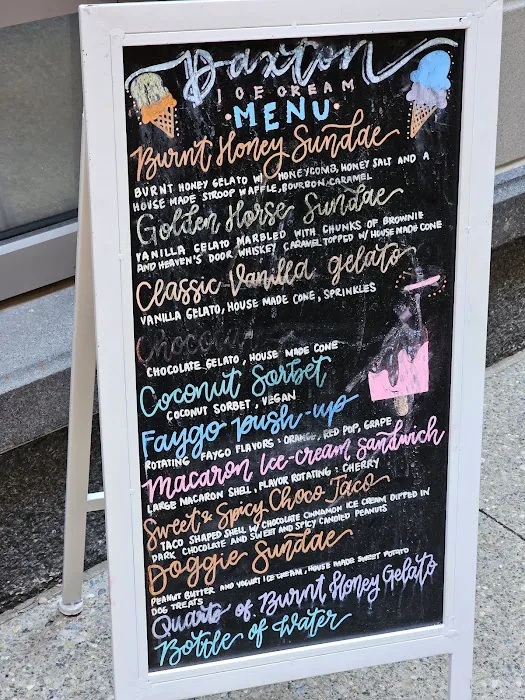 Daxton
ICE CREAM
MENU
Burnt Honey Sundae
BURNT HONEY GELATO W/ HONEYCOMB, HONEY SALT AND A
HOUSE MADE STROOP WAFFLE, BOURBON CARAMEL
Golden Horse Sundae
VANILLA GELATO MARBLED WITH CHUNKS OF BROWNIE
AND HEAVEN'S DOOR WHISKEY CARAMEL TOPPED W/ HOUSE MADE CONE
Classic Vanilla gelato
VANILLA GELATO, HOUSE MADE CONE, SPRINKLES
Chocolate
CHOCOLATE GELATO, HOUSE MADE CONE
Coconut Sorbet
COCONUT SORBET, VEGAN
Faygo push-up
ROTATING FAYGO FLAVORS: ORANGE, RED POP, GRAPE
Macaron Ice-cream Sandwich
LARGE MACARON SHELL, FLAVOR ROTATING: CHERRY
Sweet & Spicy Choco Taco
TACO SHAPED SHELL W/ CHOCOLATE CINNAMON ICE CREAM DIPPED IN
DARK CHOCOLATE AND SWEET AND SPICY CANDIED PEANUTS
Doggie Sundae
PEANUT BUTTER AND YOGURT ICE CREAM, HOUSE MADE SWEET POTATO
DOG TREATS
Quarts of Burnt Honey Gelato
Bottle of Water